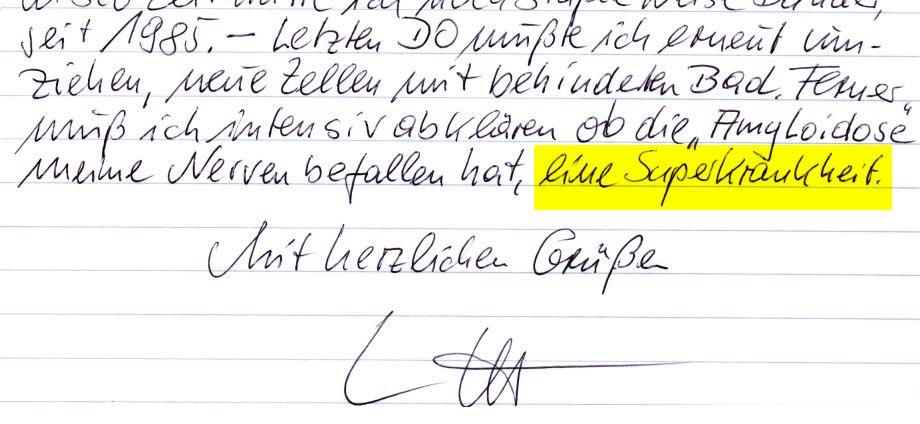 seit 1985. – Letzten DO mußte ich erneut um-
ziehen, neue Zellen mit behinderten Bad. Ferner
muß ich intensiv abklären ob die „Amyloidose“
meine Nerven befallen hat, eine Superkrankheit.
Mit herzlichen Grüßen